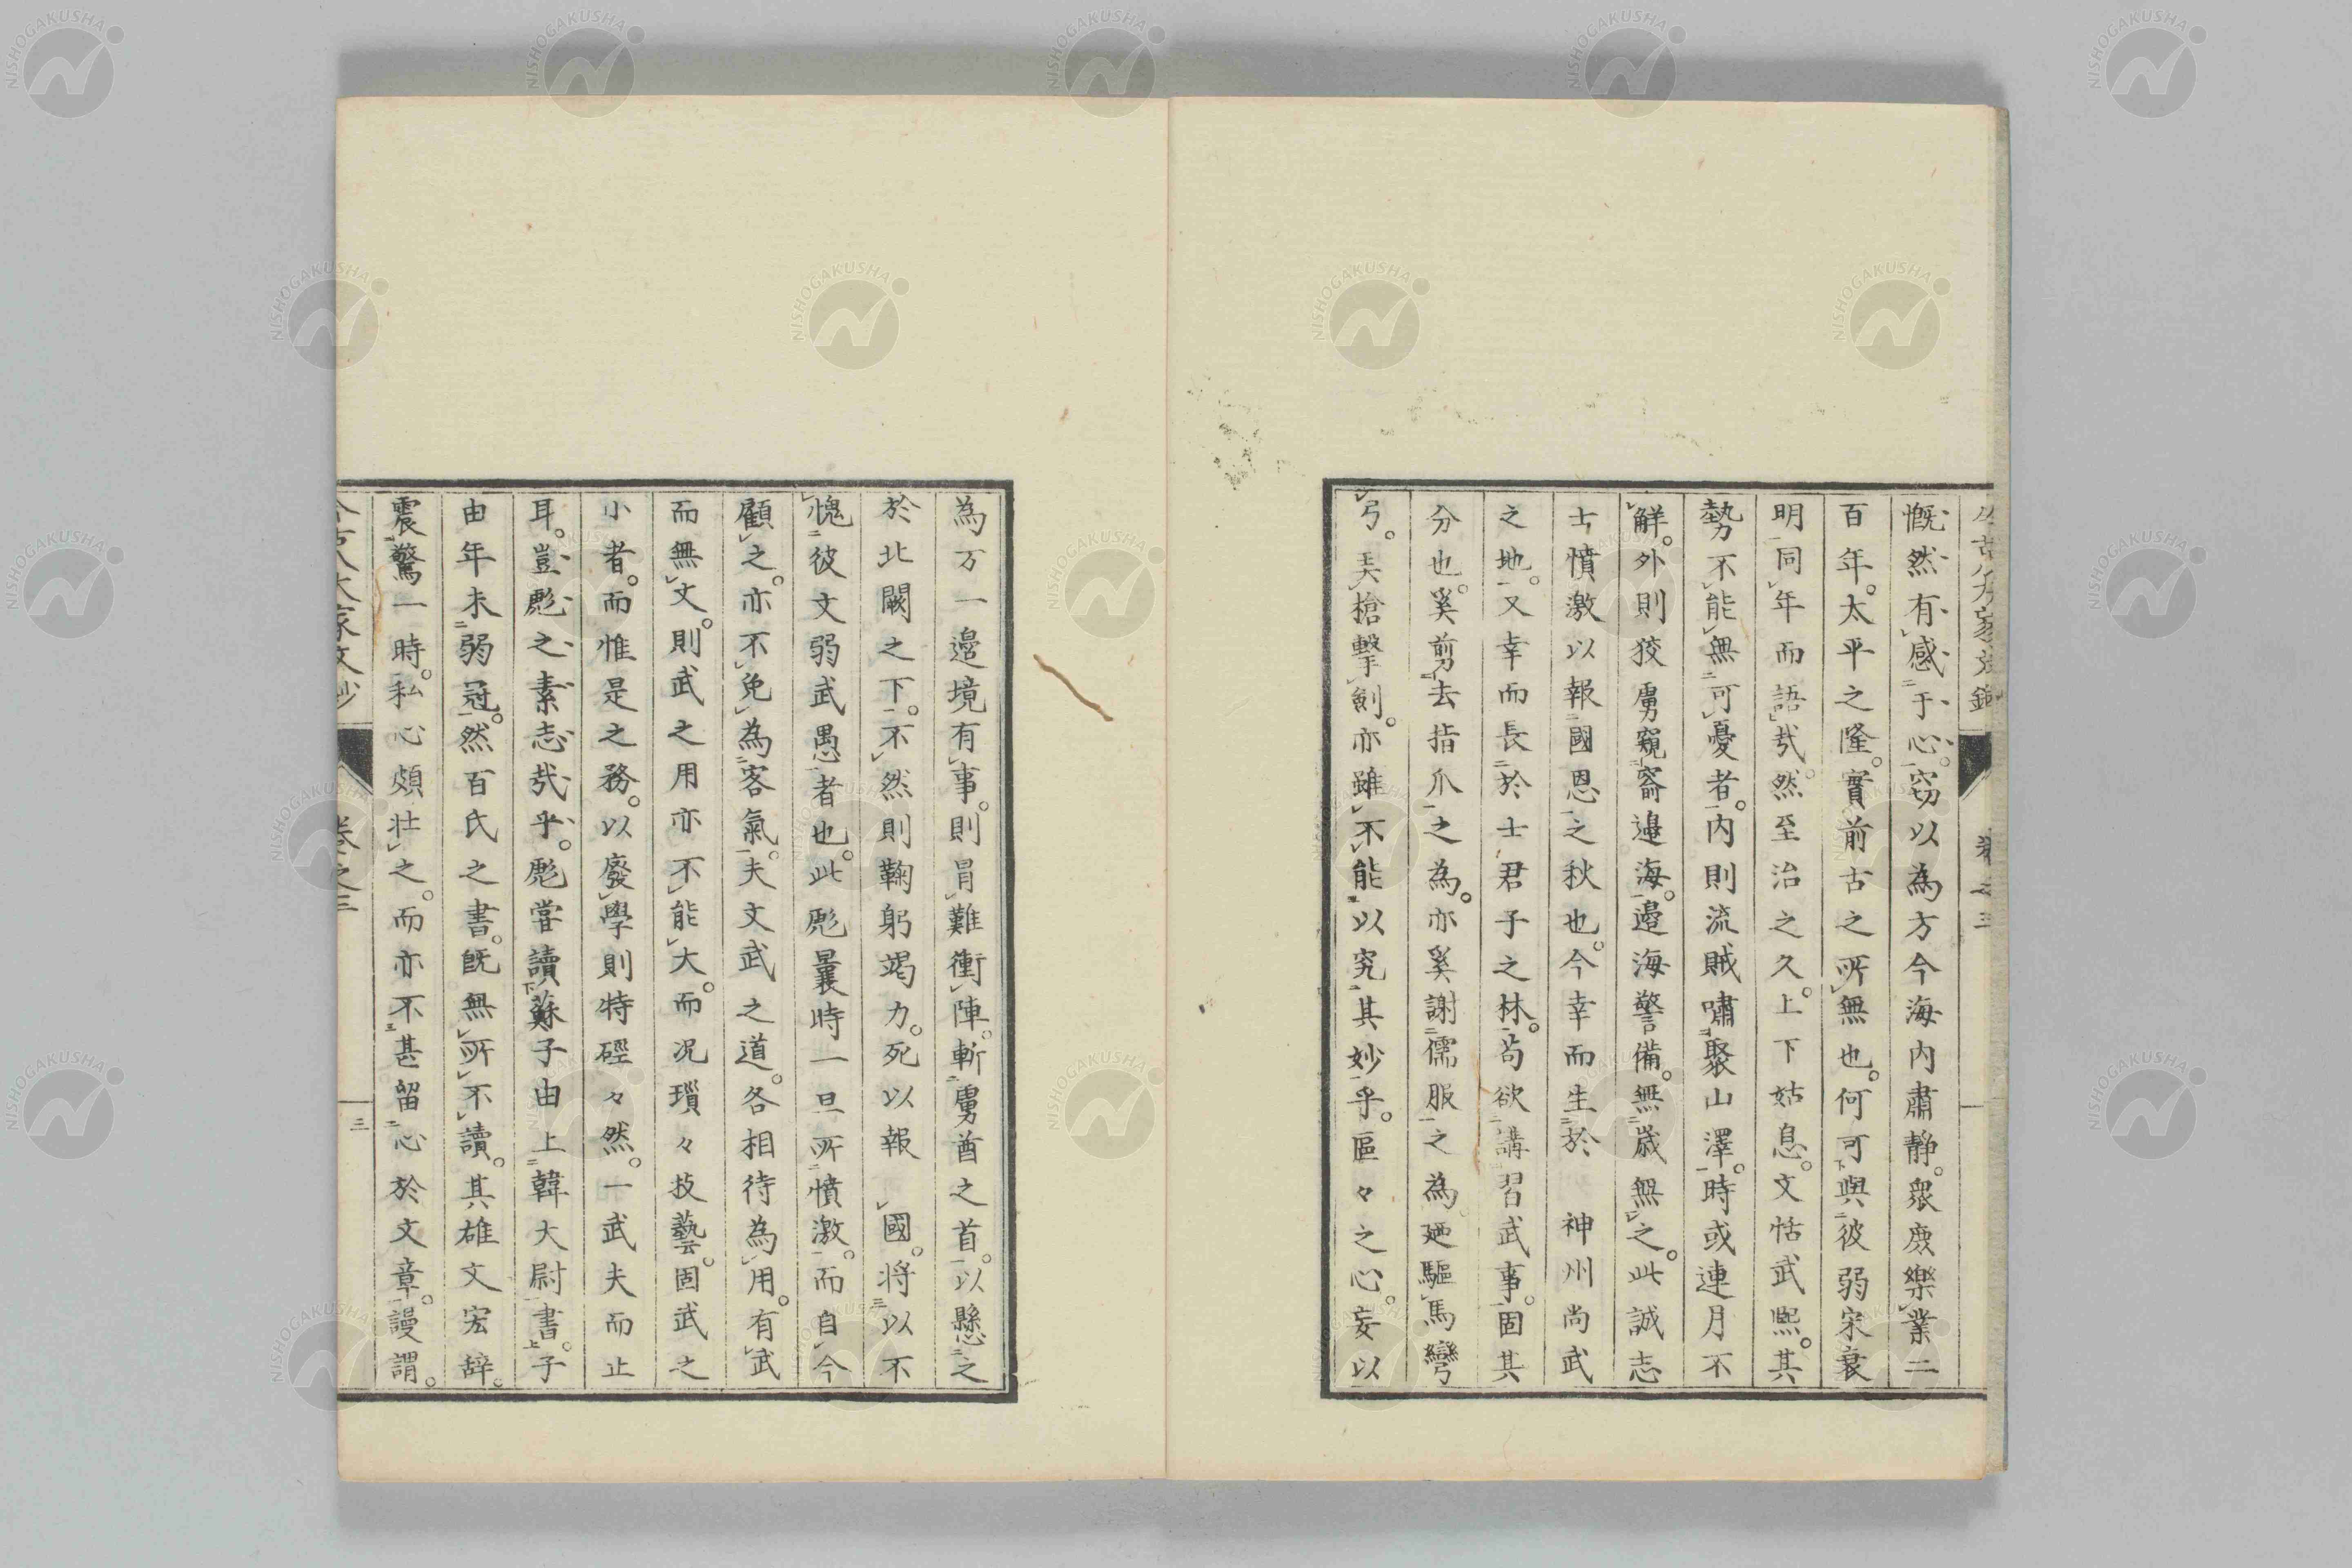 慨然有感于心。窃以為方今海内肅静。衆庶樂業二
百年。太平之隆。實前古之所無也。何可與彼弱宋衰
明同年而語哉。然至治之久。上下姑息。文恬武熈。其
勢不能無可憂者。内則流賊嘯聚山澤。時或連月不
解。外則狡虜窺窬邉海。邉海警備。無歳無之。此誠志
士憤激以報國恩之秋也。今幸而生於 神州尚武
之地。又幸而長於士君子之林。苟欲講習武事。固其
分也。奚剪去指爪之為。亦奚謝儒服之為。廼驅馬彎
弓。弄槍擊劍。亦雖不能以究其妙乎。區々之心。妄以
為万一邉境有事。則冐難衝陣。斬虜酋之首。以懸之
於北闕之下。不然則鞠躬竭力。死以報 國。将以不
愧彼文弱武愚者也。此彪曩時一旦所憤激。而自今
顧之。亦不免為客氣。夫文武之道。各相待為用。有武
而無文。則武之用亦不能大。而况瑣々技藝。固武之
小者。而惟是之務。以廢學則特硜々然。一武夫而止
耳。豈彪之素志哉乎。彪嘗讀蘇子由上韓大尉書。子
由年未弱冠。然百氏之書。既無所不讀。其雄文宏辞。
震驚一時。私心頗壮之。而亦不甚留心於文章。謾謂。
今古八大家文鈔 卷之三 三
NISHOGAKUSHA